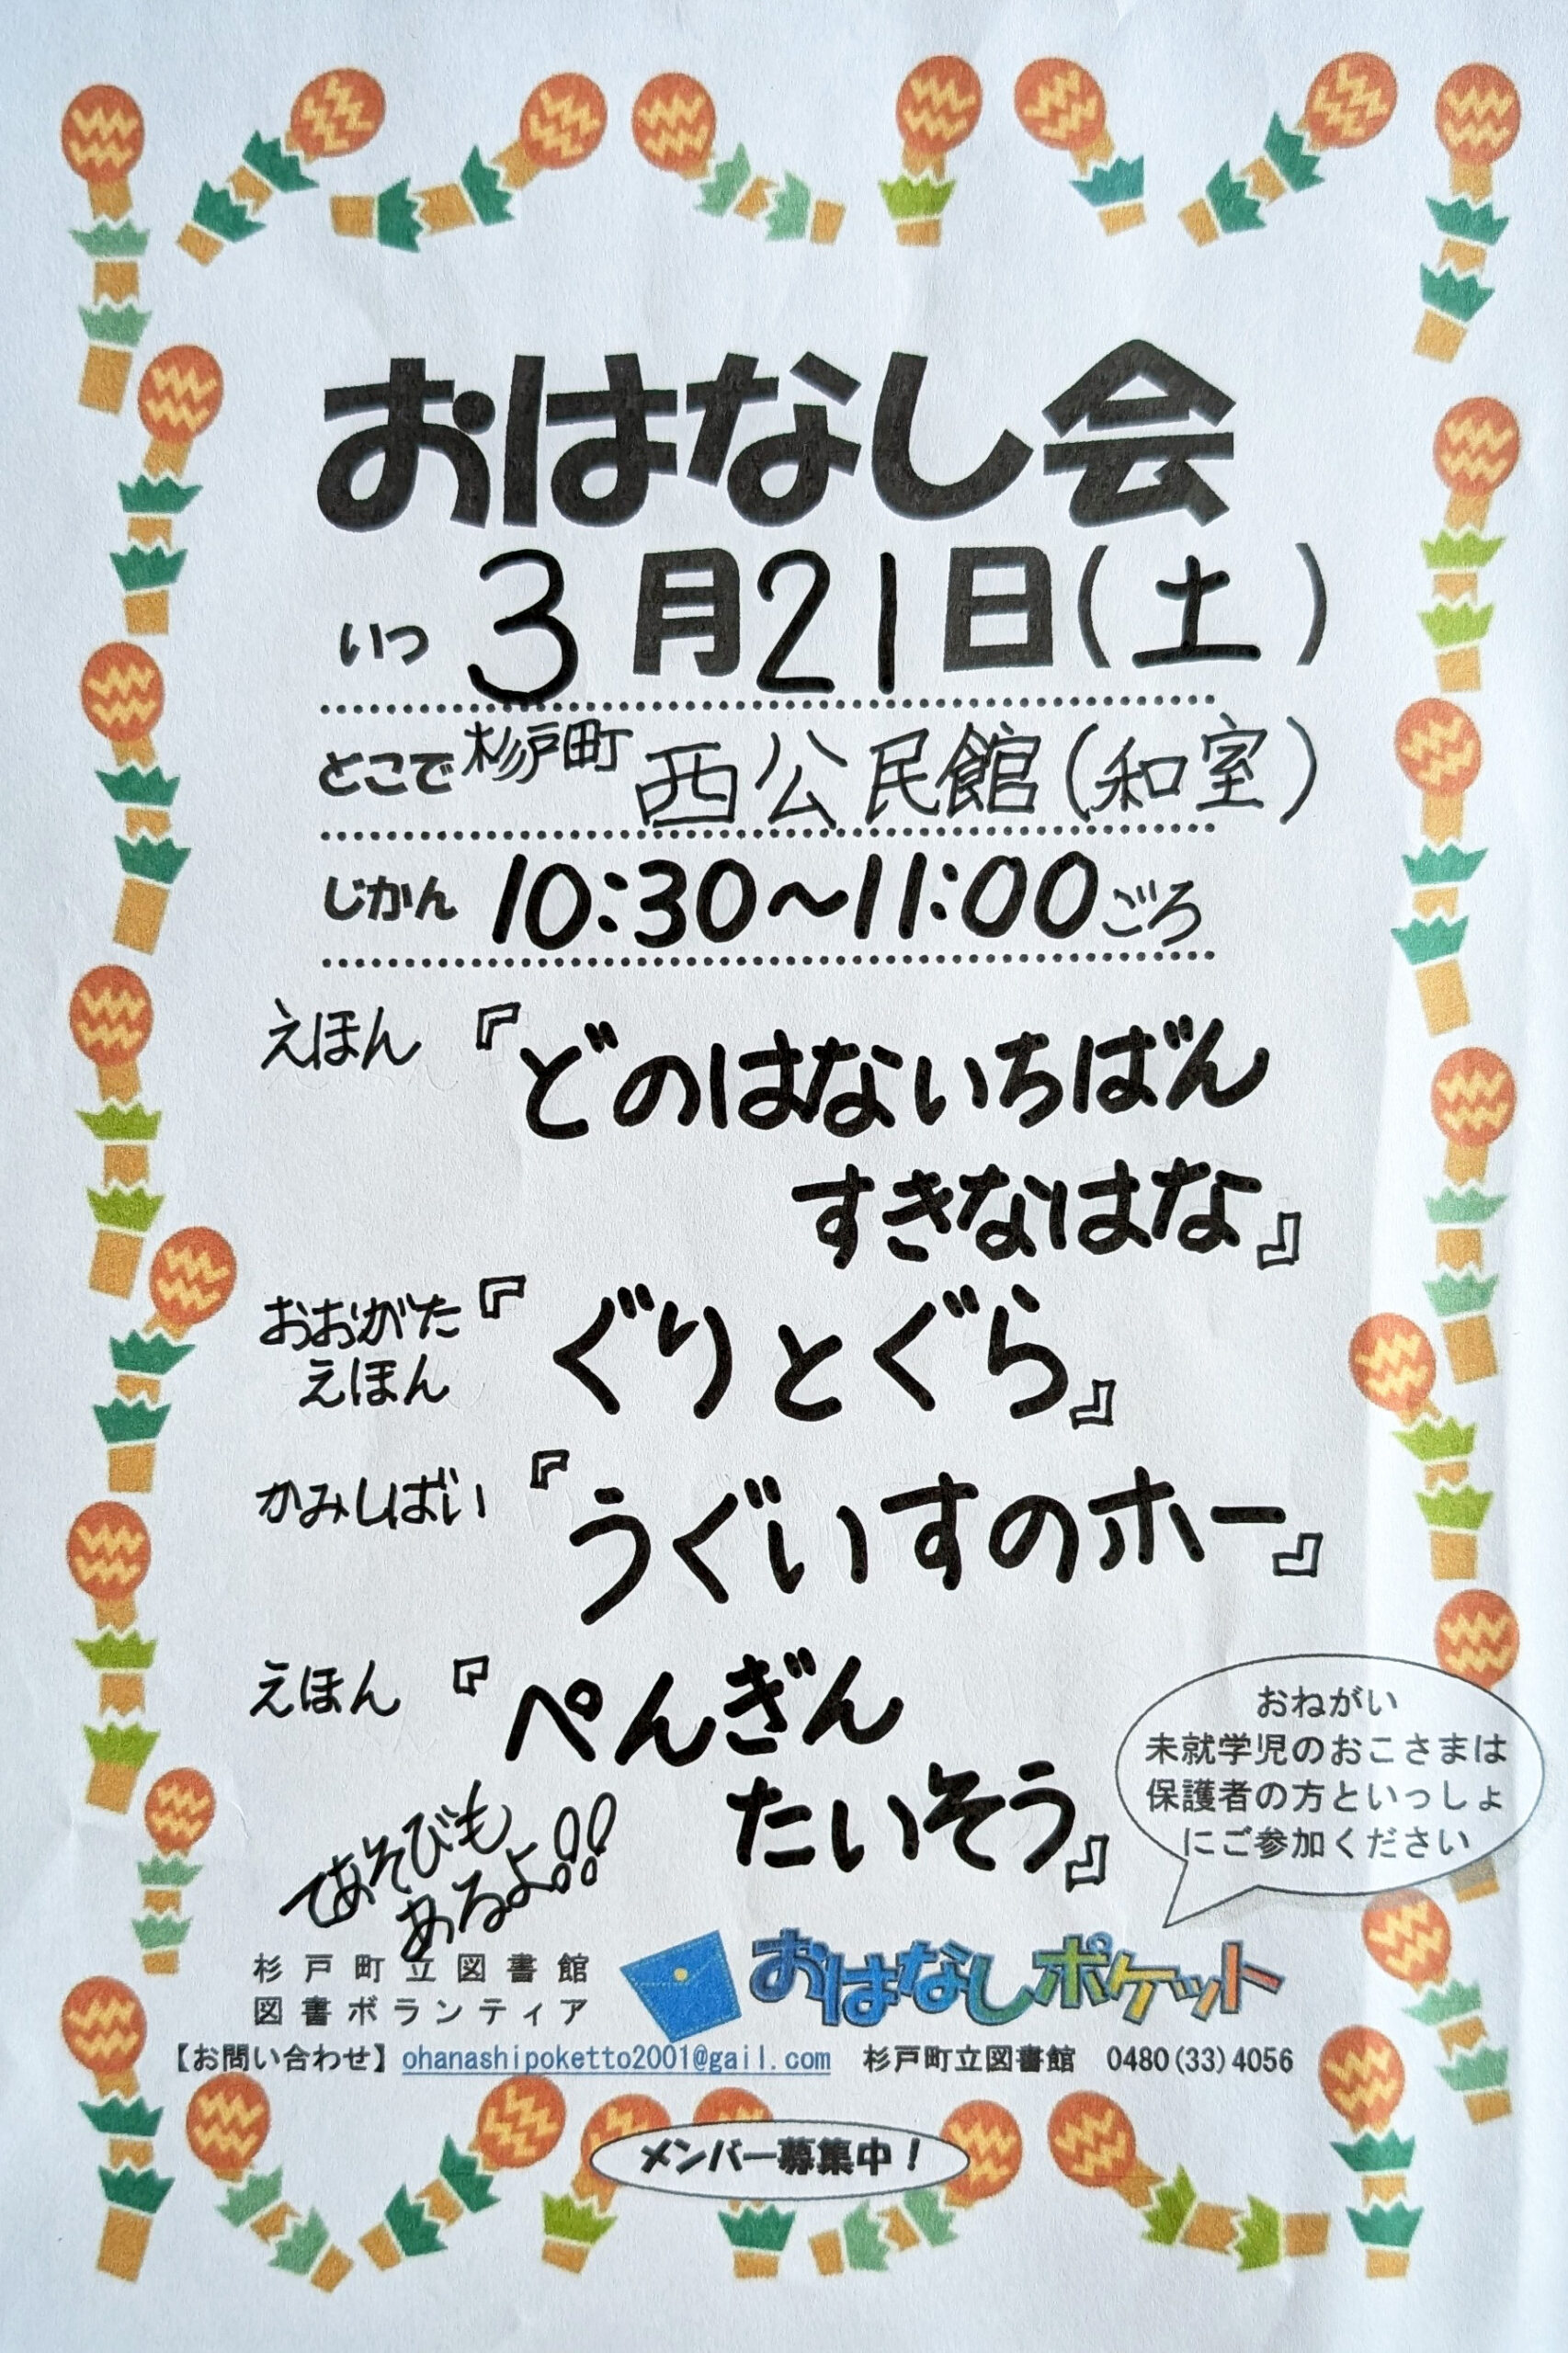 おはなし会
いつ 3月21日(土)
どこで 杉戸町 西公民館(和室)
じかん 10:30〜11:00ごろ
えほん 『どのはないちばん
すきなはな』
おおがた
えほん 『ぐりとぐら』
かみしばい 『うぐいすのホー』
えほん 『ぺんぎん
たいそう』
てあそびも
あるよ!!
おねがい
未就学児のおこさまは
保護者の方といっしょ
にご参加ください
杉戸町立図書館
図書ボランティア
おはなしポケット
【お問い合わせ】ohanashipoketto2001@gail.com 杉戸町立図書館 0480(33)4056
メンバー募集中!